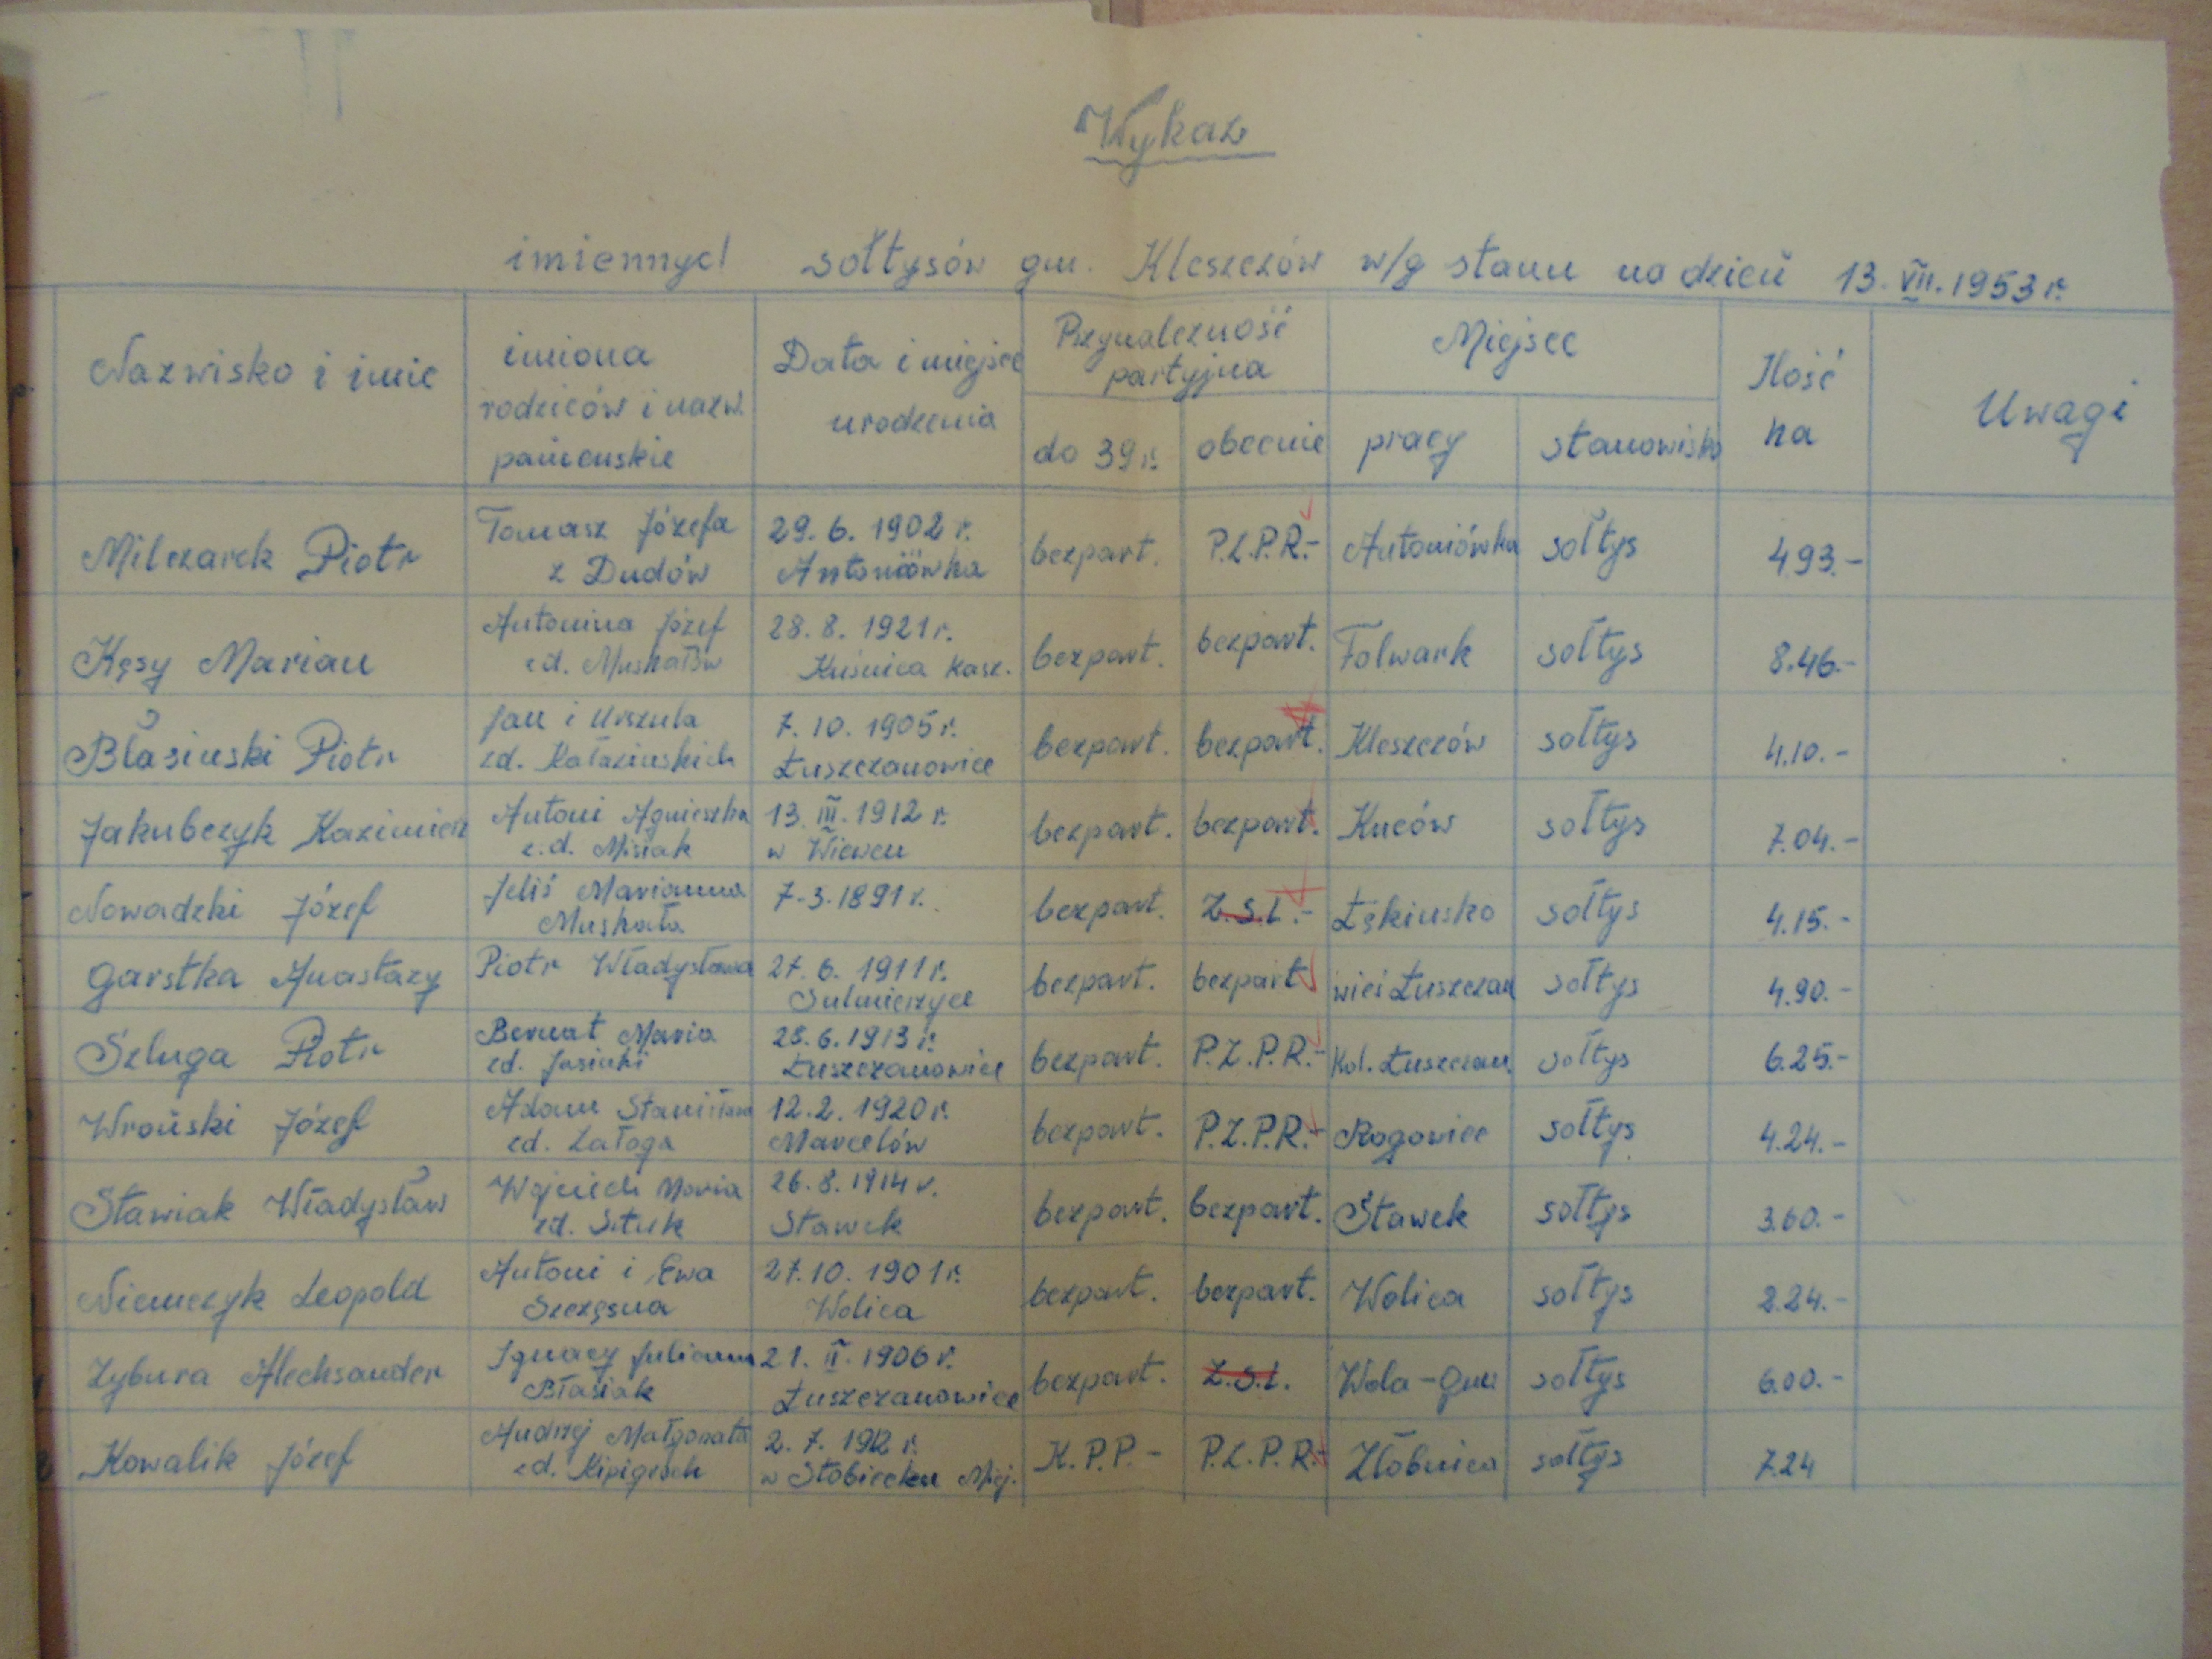 Wykaz
imiennych sołtysów gm. Kleszczów w/g stanu na dzień 13.VII.1953 r.
Nazwisko i imie
imiona
rodziców i nazw.
panieńskie
Data i miejsce
urodzenia
Przynależność
partyjna
do 39 r.
obecnie
Miejsce
pracy
stanowisko
Ilość
ha
Uwagi
Milczarek Piotr
Tomasz Józefa
z Dudów
29. 6. 1902 r.
Antoniówka
bezpart.
P.Z.P.R.-
Antoniówka
sołtys
4.93.-
Kęsy Marian
Antonina Józef
zd. Muskałów
28. 8. 1921 r.
Kuźnica Kasz.
bezpart.
bezpart.
Folwark
sołtys
8.46.-
Błasiński Piotr
Jan i Urszula
zd. Kałazińskich
7. 10. 1905 r.
Łuszczanowice
bezpart.
bezpart.
Kleszczów
sołtys
4.10.-
Jakubczyk Kazimierz
Antoni Agnieszka
z.d. Misiak
13. III. 1912 r.
w
bezpart.
bezpart.
Kuców
sołtys
7.04.-
Nowadzki Józef
Marianna
Muskała
7-3-1891 r.
bezpart.
Z.S.L.-
Łękińsko
sołtys
4.15.-
Garstka Anastazy
Piotr Władysława
27. 6. 1911 r.
Sulmierzyce
bezpart.
bezpart
wieś Łuszczan
sołtys
4.90.-
Szluga Piotr
Bernat Maria
zd. Jasiński
28. 6. 1913 r.
Łuszczanowice
bezpart.
P.Z.P.R.-
Kol. Łuszczan.
sołtys
6.25.-
Wroński Józef
Adam Stanisława
zd. Załoga
12. 2. 1920 r.
Marcelów
bezpart.
P.Z.P.R.-
Rogowiec
sołtys
4.24.-
Stawiak Władysław
Wojciech Maria
zd. Sztuk
26. 8. 1914 r.
Stawek
bezpart.
bezpart.
Stawek
sołtys
3.60.-
Niemczyk Leopold
Antoni i Ewa
Szczęsna
27. 10. 1901 r.
Wolica
bezpart.
bezpart.
Wolica
sołtys
2.24.-
Zybura Alechsander
Ignacy Julianna
Błasiak
21. II. 1906 r.
Łuszczanowice
bezpart.
Z.S.L.
Wola-
sołtys
6.00.-
Kowalik Józef
Andrzej Małgorzata
zd.
2. 7. 1912 r.
w Stobiecku Miej.
K.P.P.-
P.Z.P.R.-
Żłobnica
sołtys
7.24